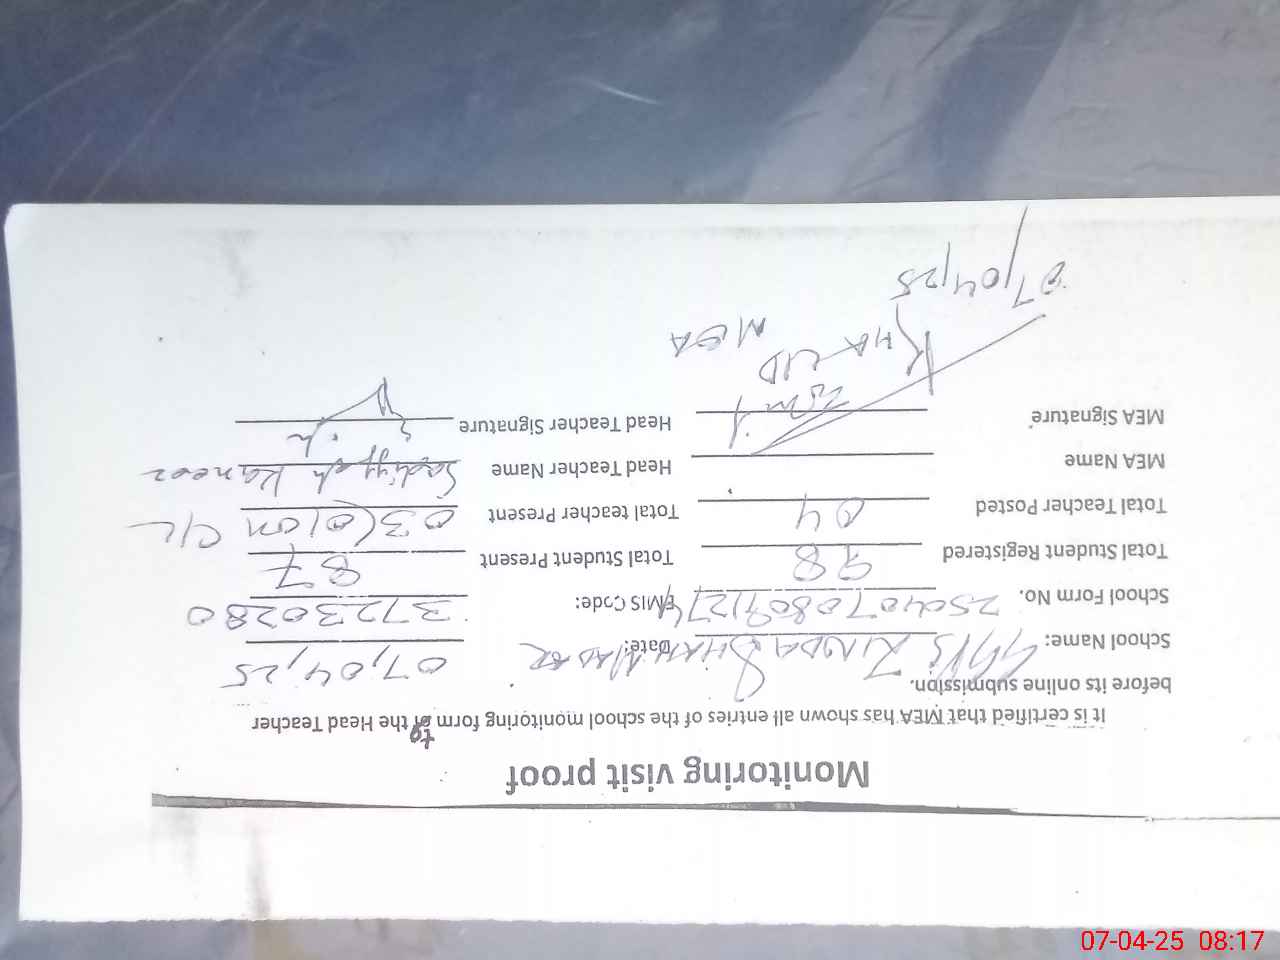 Monitoring visit proof
It is certified that MEA has shown all entries of the school monitoring form to the Head Teacher
before its online submission.
School Name: ZINDA SHAH MADAR Date: 07,04,25
School Form No. EMIS Code: 37230280
Total Student Registered 98 Total Student Present 87
Total Teacher Posted 04 Total teacher Present 03(01 on C/L
MEA Name Head Teacher Name Kaneez
MEA Signature Head Teacher Signature
KHALID
MEA
07,04,25
07-04-25 08:17